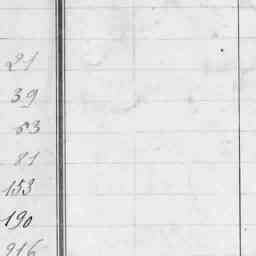 21
39
53
81
153
190
216